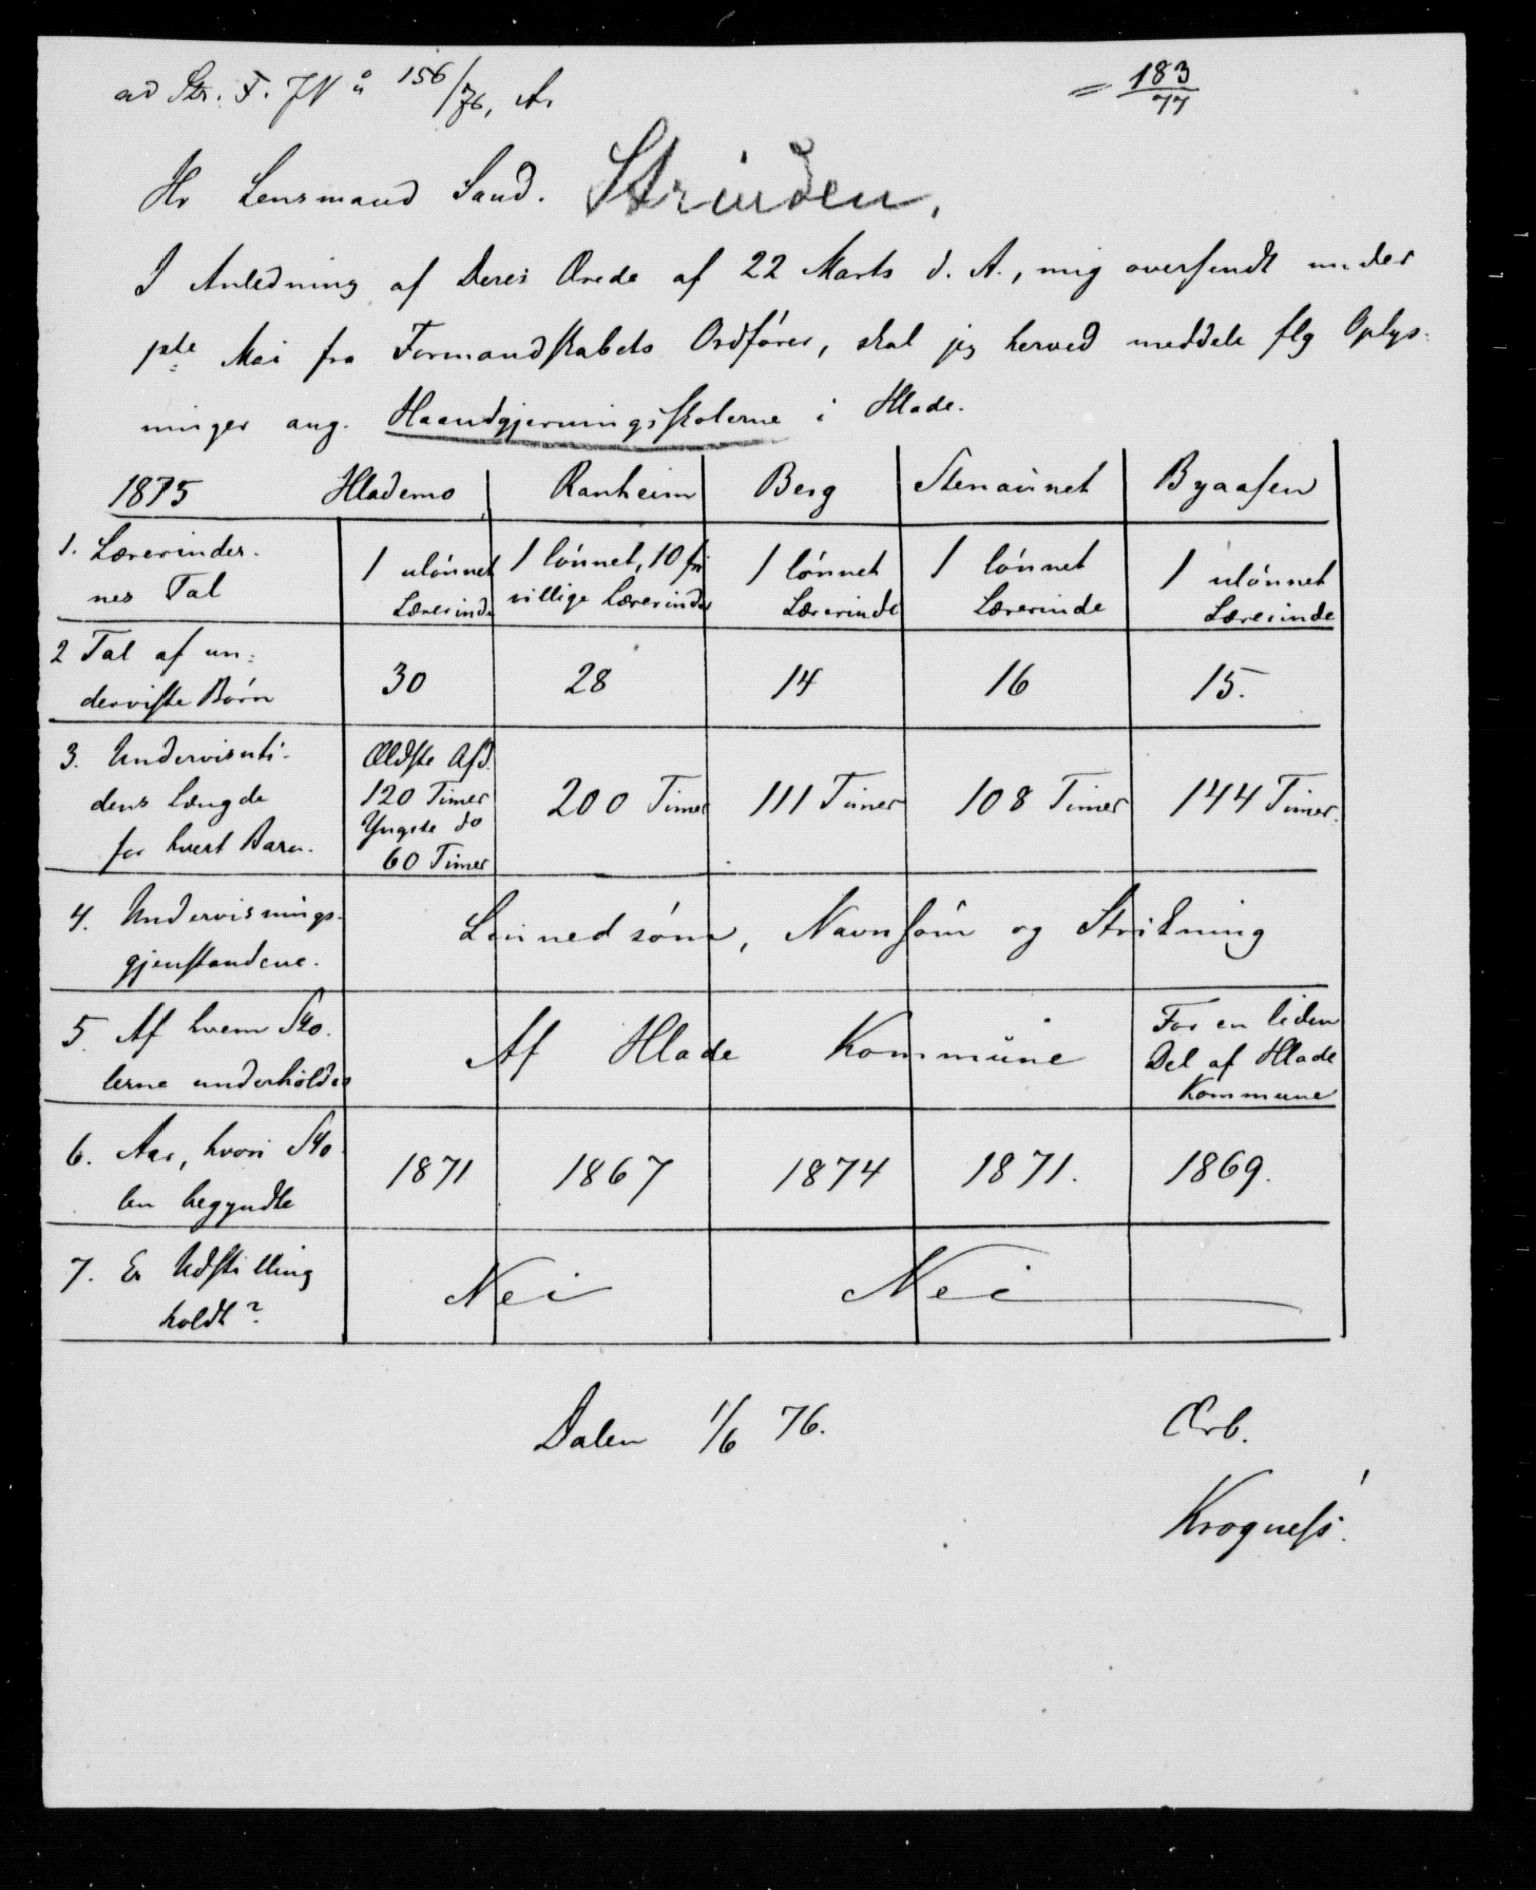 ad Str. F. JN 156/76, A.
= 183/77
Hr Lensmand Sand. Strinden.
I Anledning af Deres Ærede af 22 Marts d. A., mig oversendt under
1ste Mai fra Formandskabets Ordfører, skal jeg herved meddele flg Oplys-
ninger ang. Haandgjerningsskolerne i Hlade.
1875 Hlademo Ranheim Berg Stenaunet Byaasen
1. Lærerinder-
nes Tal
1 ulønnet
Lærerinde
1 lønnet, 10 fri
villige Lærerinder
1 lønnet
Lærerinde
1 lønnet
Lærerinde
1 ulønnet
Lærerinde
2 Tal af un-
derviste Børn
30 28 14 16 15.
3. Undervisnti-
dens Længde
for hvert Barn.
Ældste Afd.
120 Timer
Yngste do
60 Timer
200 Timer 111 Timer 108 Timer 144 Timer.
4. Undervisnings-
gjenstandene.
Linnedsøm, Navnsøm og Strikning
5. Af hvem Sko-
lerne underholdes
Af Hlade Kommune
For en liden
Del af Hlade
Kommune
6. Aar, hvori Sko-
len begyndte
1871 1867 1874 1871. 1869.
7. Er Udstilling
holdt?
Nei Nei
Dalen 1/6 76.
Ærb.
Krogness.